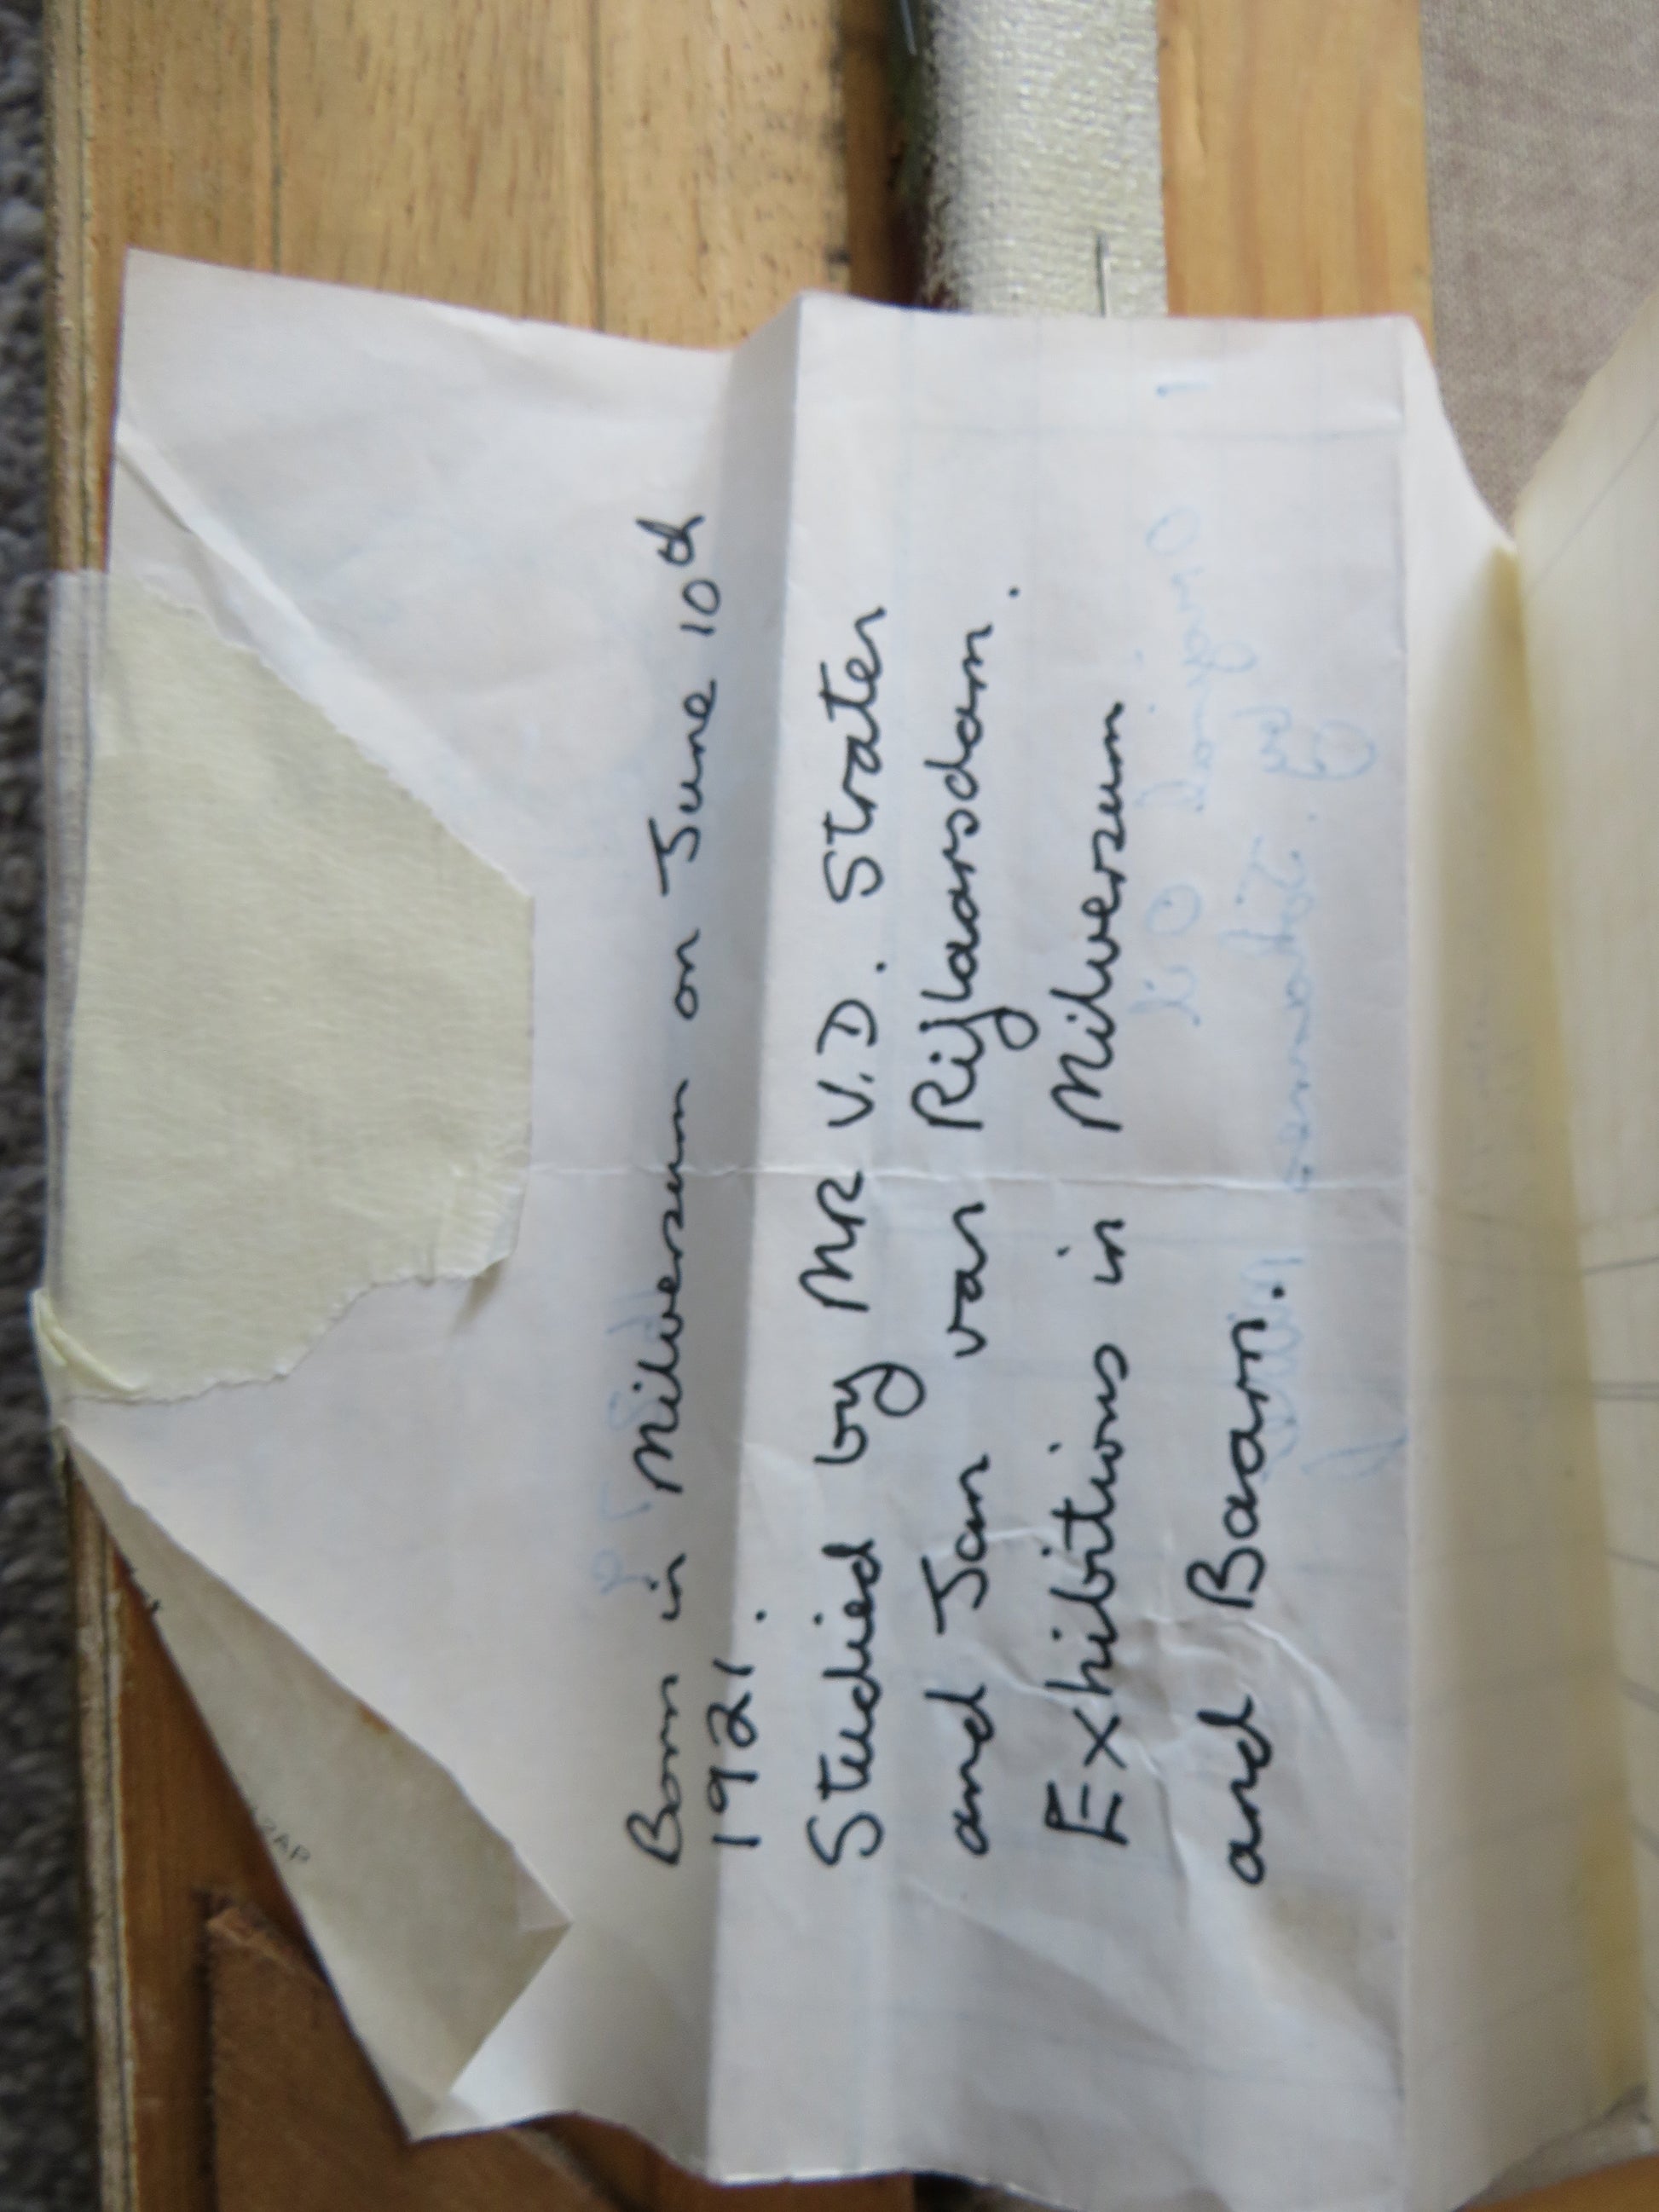 Born in Milversum on June 10th
1921.
Studied by MR V.D. Straten
and Jan van Rijlaarsdam.
Exhibitions in Milversum
and Baarn.